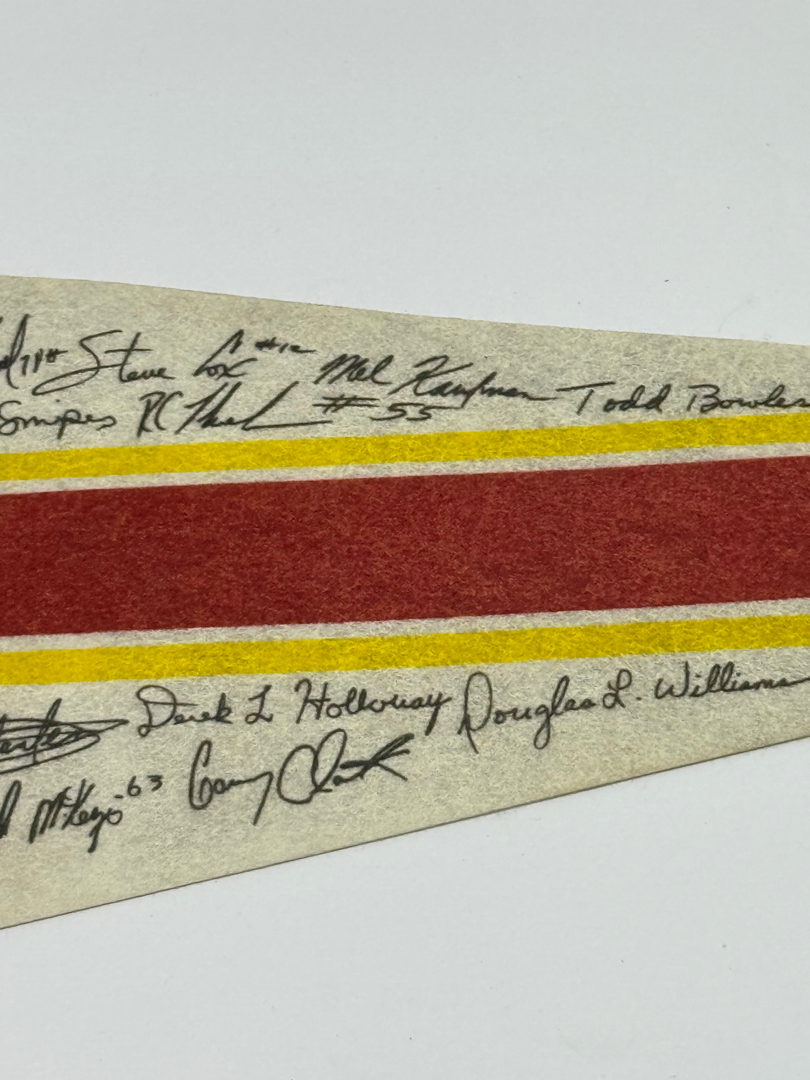 Steve Cox #12 Mel Kaufman Todd Bowles
Snipes RC #55
Derek L Holloway Douglas L. Williams
McKenzie 63 Gary Clark